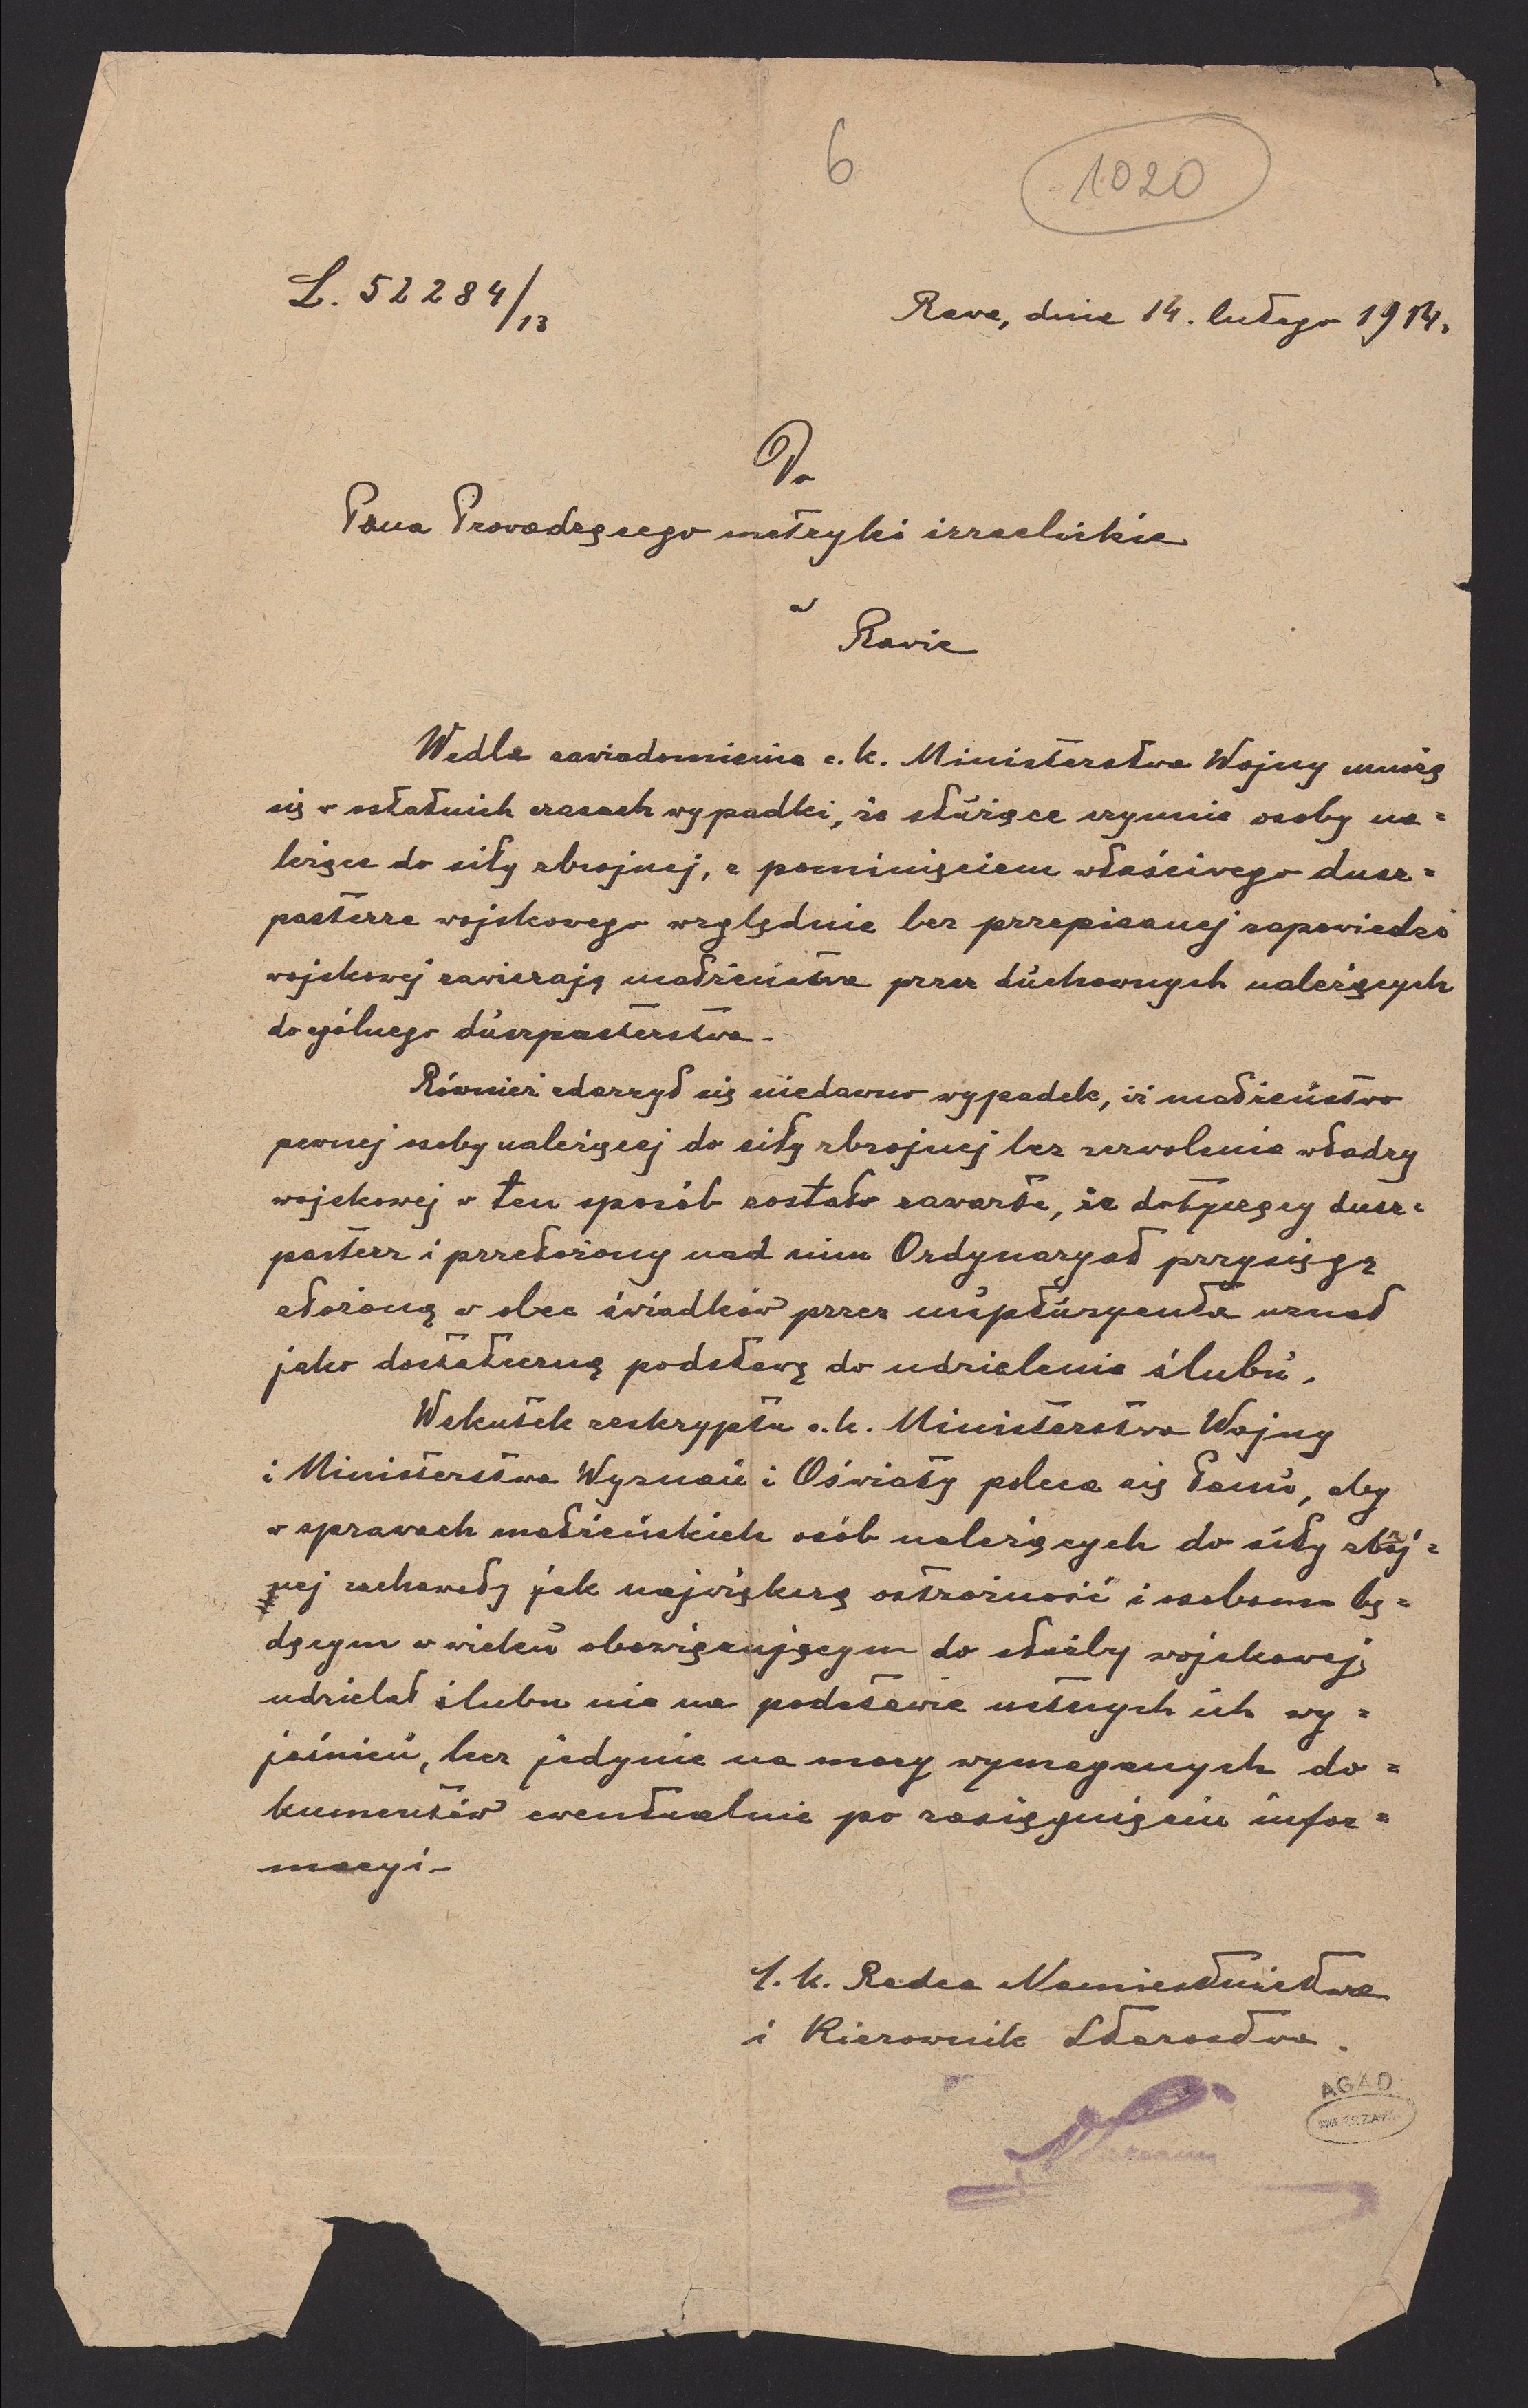 6
1020
L. 52284/13
Rawa, dnia 14. lutego 1914.
Do
Pana Prowadzącego metryki izraelickie
w
Rawie
Wedle zawiadomienia c. k. Ministerstwa Wojny mnożą
się w ostatnich czasach wypadki, że służące czynnie osoby na=
leżące do siły zbrojnej, z pominięciem właściwego dusz=
pasterza wojskowego względnie bez przepisanej zapowiedzi
wojskowej zawierają małżeństwa przez duchownych należących
do ogólnego duszpasterstwa.
Również zdarzył się niedawno wypadek, iż małżeństwo
pewnej osoby należącej do siły zbrojnej bez zezwolenia władzy
wojskowej w ten sposób zostało zawarte, że dotyczący dusz=
pasterz i przełożony nad nim Ordynaryat przysięgę
złożoną w obec świadków przez nupturyenta uznał
jako dostateczną podstawę do udzielenia ślubu.
Wskutek reskryptu c. k. Ministerstwa Wojny
i Ministerstwa Wyznań i Oświaty poleca się Panu, aby
w sprawach małżeńskich osób należących do siły zbroj=
nej zachował jak największą ostrożność i osobom bę=
dącym w wieku obowiązującym do służby wojskowej
udzielał ślubu nie na podstawie ustnych ich wy=
jaśnień, lecz jedynie na mocy wymaganych do=
kumentów ewentualnie po zasięgnięciu infor=
macyi.
C. k. Radca Namiestnictwa
i Kierownik Starostwa.
AGAD
WARSZAWA